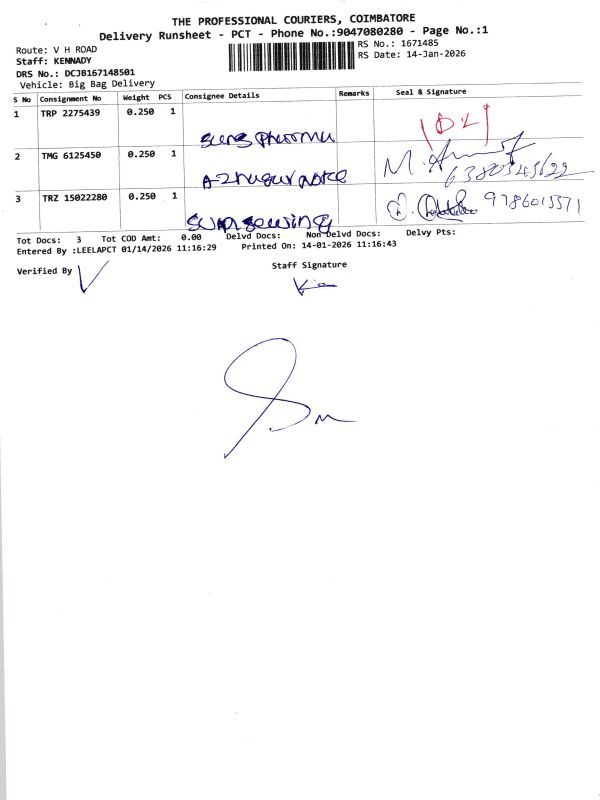 THE PROFESSIONAL COURIERS, COIMBATORE
Delivery Runsheet - PCT - Phone No.:9047080280 - Page No.:1
Route: V H ROAD
RS No.: 1671485
Staff: KENNADY
RS Date: 14-Jan-2026
DRS No.: DCJB167148501
Vehicle: Big Bag Delivery
S No Consignment No Weight PCS Consignee Details Remarks Seal & Signature
1 TRP 2275439 0.250 1
2 TMG 6125450 0.250 1
M.
3 TRZ 15022280 0.250 1
sun sewing
Tot Docs: 3 Tot COD Amt: 0.00 Delvd Docs: Non Delvd Docs: Delvy Pts:
Entered By :LEELAPCT 01/14/2026 11:16:29 Printed On: 14-01-2026 11:16:43
Verified By
Staff Signature